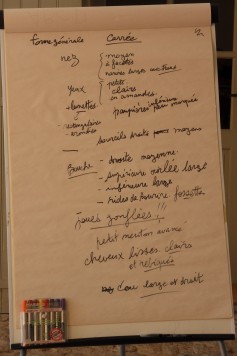 forme générale Carrée
nez { moyen
à facettes
narines larges
Yeux { petits
clairs
en amandes
- lunettes
paupière inférieure marquée
- rectangulaires
- arrondies
- sourcils droits moyens
Bouche - droite moyenne
- supérieure ourlée large
- inférieure large
- rides de sourire fossette
joues gonflées !!!
petit menton avancé
cheveux lisses clairs
et
- Cou large et droit